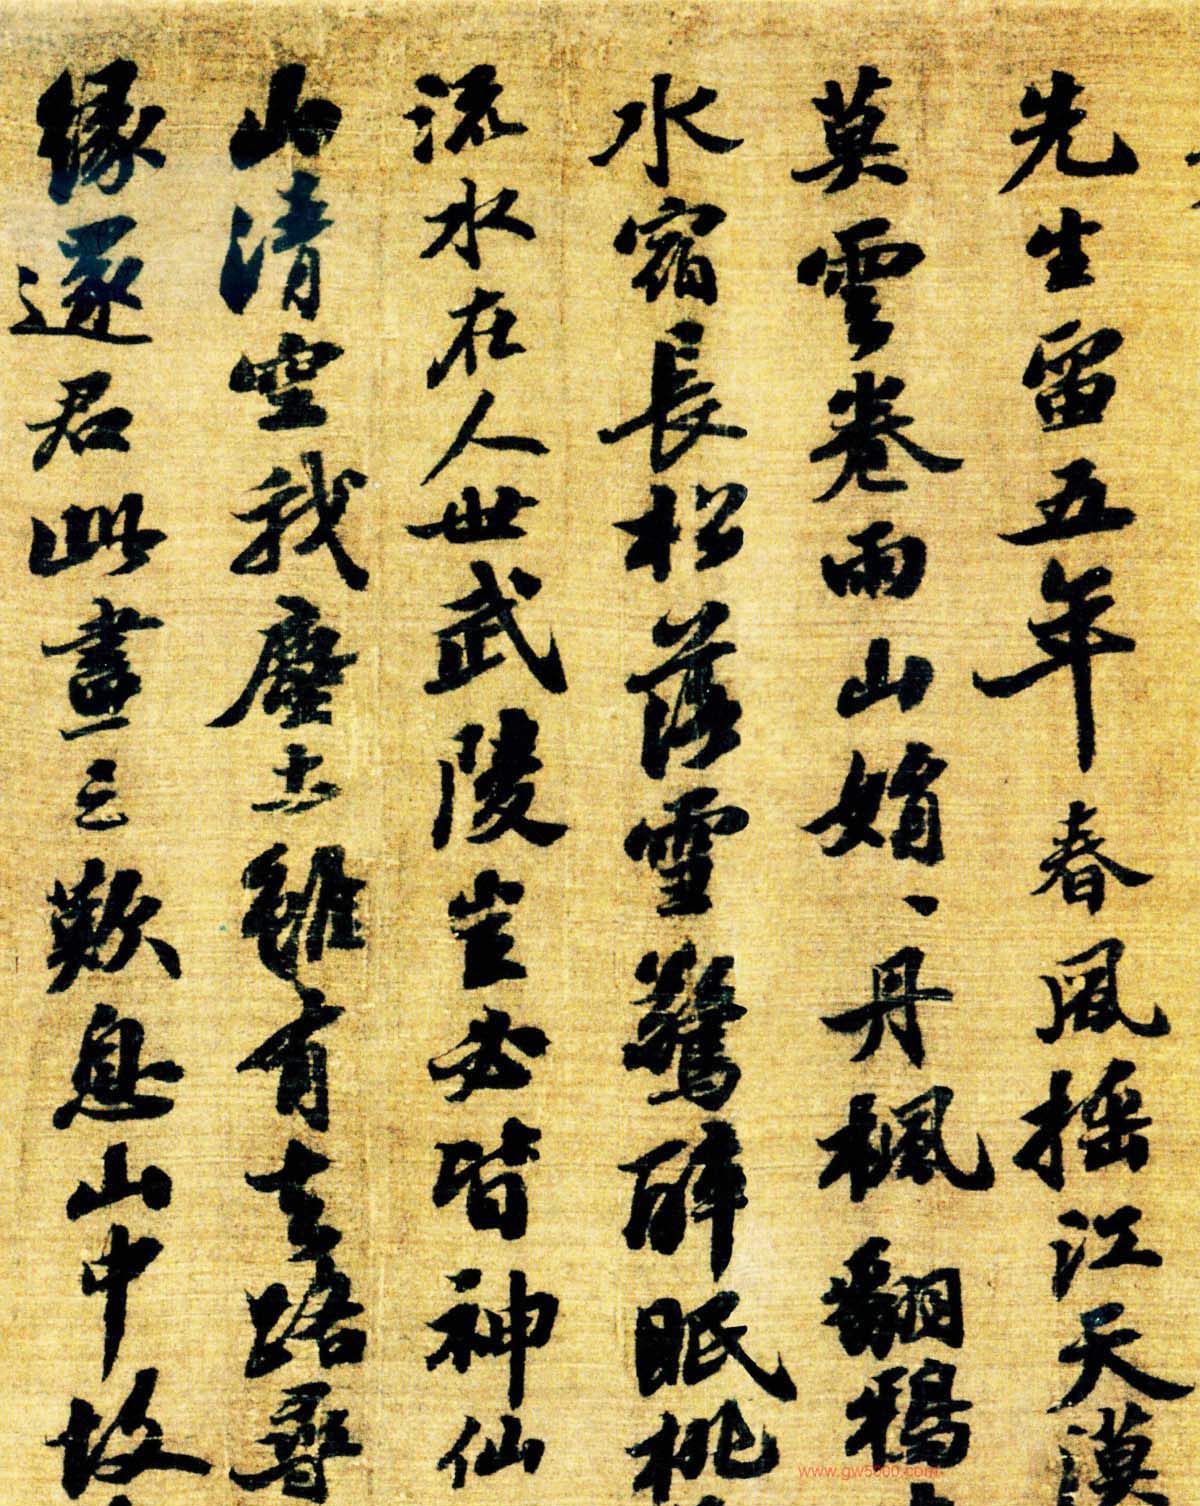 先生留五年春風摇江天漠
莫雲卷雨山娟、丹楓翻鴉
水宿長松落雪驚醉眠桃
流水在人世武陵豈必皆神仙
山清空我塵土雖有去路尋
緣還君此畫三歎息山中故
www.gw5000.com